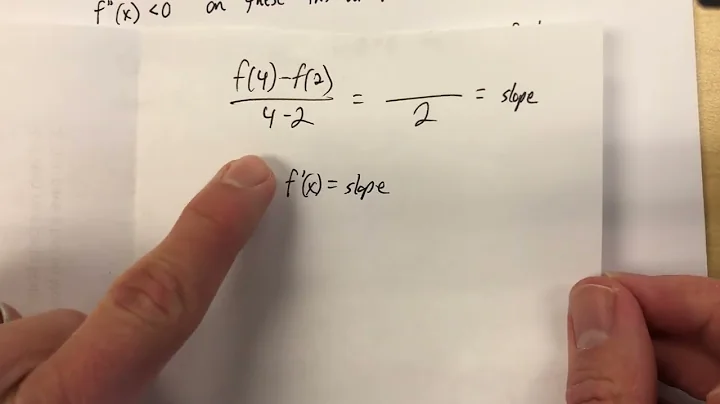 f"(x) < 0 on these
f(4)-f(2)
4-2
=
2
= slope
f'(x) = slope